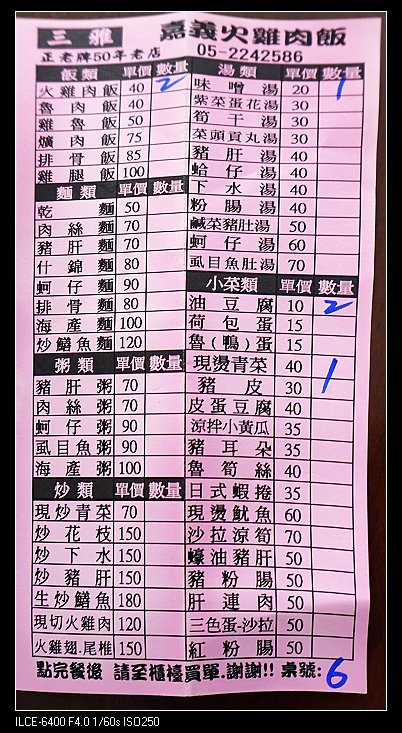 三雅 嘉義火雞肉飯
正老牌50年老店 05-2242586
飯類 單價 數量
火雞肉飯 40 2
魯肉飯 40
雞魯飯 50
爌肉飯 75
排骨飯 85
雞腿飯 100
麵類 單價 數量
乾麵 50
肉絲麵 70
豬肝麵 70
什錦麵 80
蚵仔麵 90
排骨麵 80
海產麵 100
炒鱔魚麵 120
粥類 單價 數量
豬肝粥 70
肉絲粥 70
蚵仔粥 90
虱目魚粥 90
海產粥 100
炒類 單價 數量
現炒青菜 70
炒花枝 150
炒下水 150
炒豬肝 150
生炒鱔魚 180
現切火雞肉 120
火雞翅.尾椎 150
湯類 單價 數量
味噌湯 20 1
紫菜蛋花湯 30
筍干湯 30
菜頭貢丸湯 30
豬肝湯 40
蛤仔湯 40
下水湯 40
粉腸湯 40
鹹菜豬肚湯 50
蚵仔湯 60
虱目魚肚湯 70
小菜類 單價 數量
油豆腐 10 2
荷包蛋 15
魯(鴨)蛋 15
現燙青菜 40
豬皮 30 1
皮蛋豆腐 40
涼拌小黃瓜 35
豬耳朵 35
魯筍絲 40
日式蝦捲 35
現燙魷魚 60
沙拉涼筍 70
蠔油豬肝 50
豬粉腸 50
肝連肉 50
三色蛋-沙拉 50
紅粉腸 50
點完餐後 請至櫃檯買單.謝謝!! 桌號: 6
ILCE-6400 F4.0 1/60s ISO250